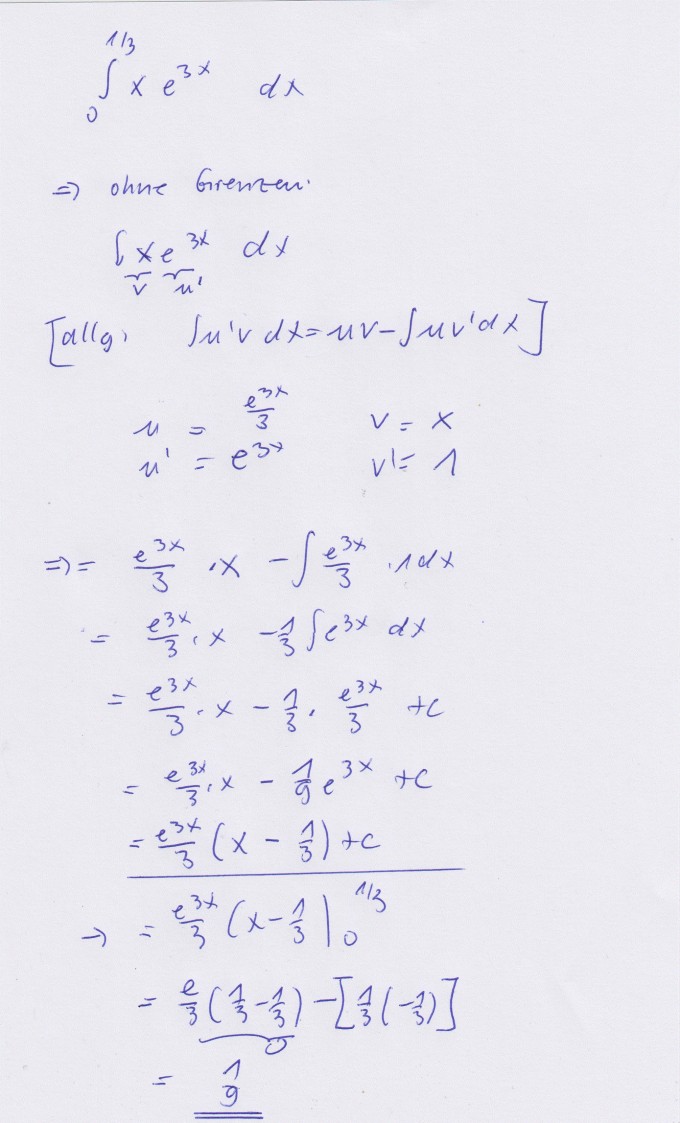 ∫₀^{1/3} x e^{3x} dx
=> ohne Grenzen:
∫ x e^{3x} dx
v u'
[allg. ∫u'v dx = uv - ∫uv'dx]
u = e^{3x}/3 v = x
u' = e^{3x} v' = 1
=> = e^{3x}/3 · x - ∫ e^{3x}/3 · 1 dx
= e^{3x}/3 · x - 1/3 ∫ e^{3x} dx
= e^{3x}/3 · x - 1/3 · e^{3x}/3 + C
= e^{3x}/3 · x - 1/9 e^{3x} + C
= e^{3x}/3 (x - 1/3) + C
→ = e^{3x}/3 (x - 1/3 |₀^{1/3}
= e/3 (1/3 - 1/3) - [1/3 (-1/3)]
0
= 1/9